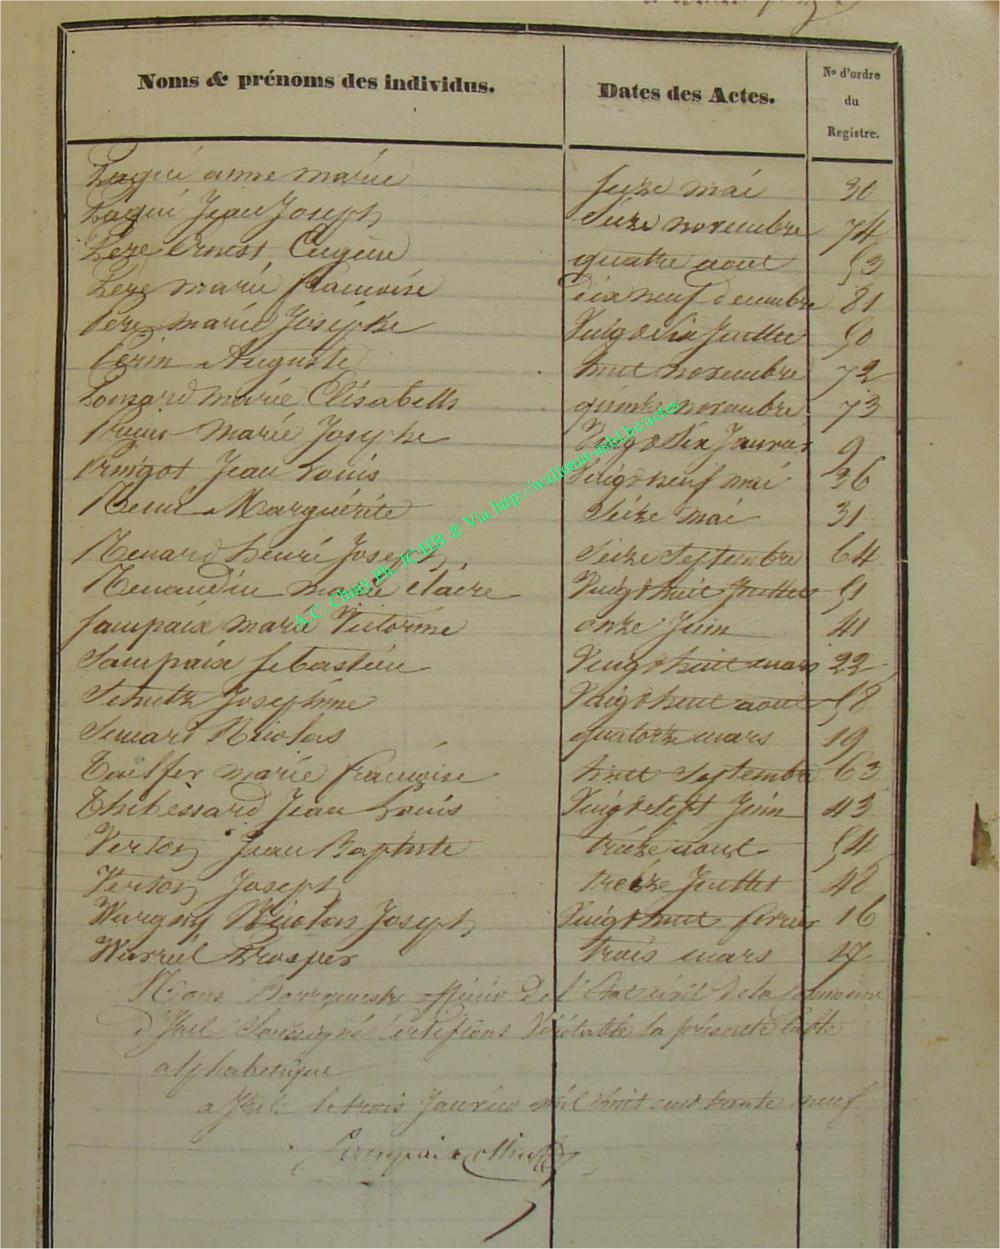 Noms & prénoms des individus. Dates des Actes. Nos d'ordre du Registre.
Paqué anne marie seize mai 30
Paqué Jean Joseph Seize novembre 74
Peze ernest Eugène quatre aout 53
Peze marie françoise dix neuf decembre 81
Peze marie Josephe Vingt six Juillet 50
Perin Auguste huit novembre 72
Ponsard marie Elisabeth quinze novembre 73
marie Josephe Vingt six Janvier 9
Jean Louis Vingt neuf mai 36
Marguérite Seize mai 31
Renard henri Joseph Seize Septembre 64
Renaudin marie claire Vingt huit Juillet 51
Sampaix marie Victorine onze Juin 41
Sampaix sebastien Vingt huit mars 22
Schutz Josephine Vingt huit aout 58
Simart Nicolas quatorze mars 19
Tailfer marie françoise huit Septembre 63
Thibessard Jean Louis Vingt sept Juin 43
Jean Baptiste treize aout 54
Joseph treize Juillet 48
Wargny Nicolas Joseph Vingt huit fevrier 16
Prosper trois mars 17
Nous Bourgmestre officier de l'Etat civil de la Commune
d'Izel Soussigné Certifions Véritable la présente table
alphabetique
a Izel le trois Janvier mil huit cent trente neuf
A.C. Chiny Ph. JCHB ® Via http://wallonia-asbl.be/actes